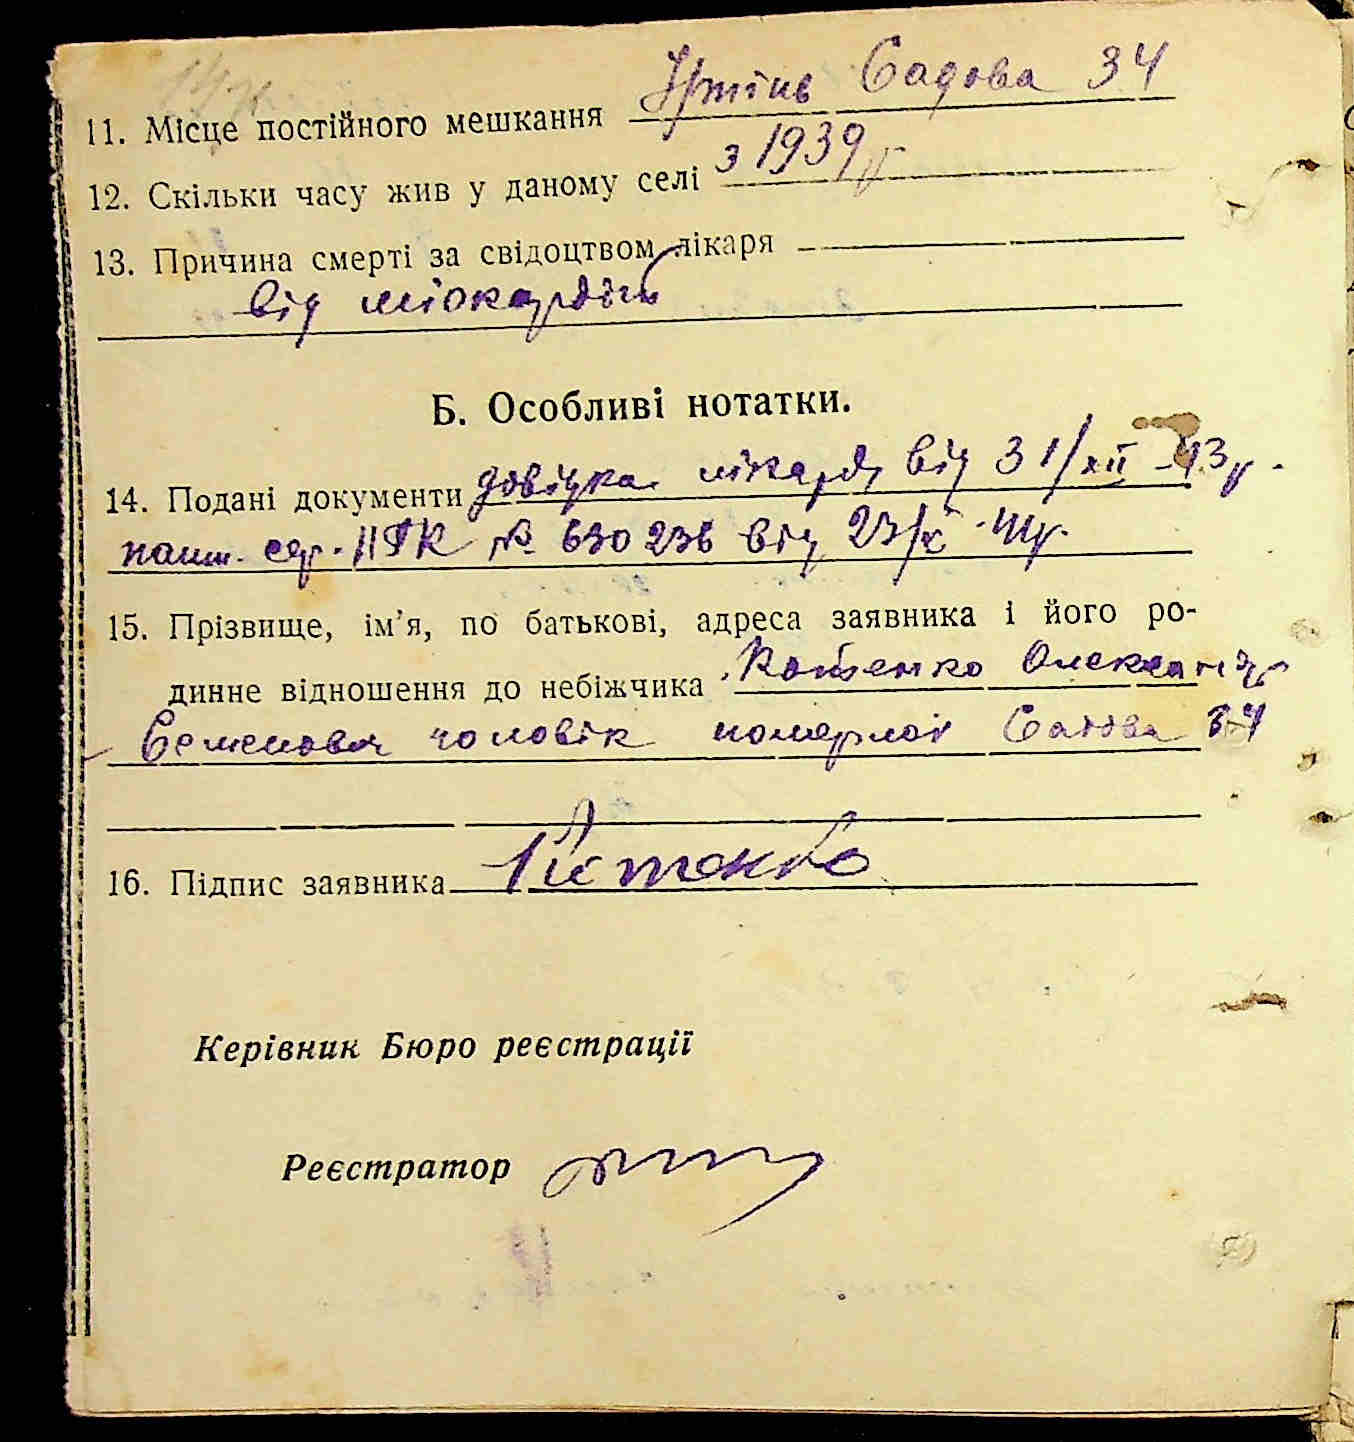 11. Місце постійного мешкання Ірпінь Садова 34
12. Скільки часу жив у даному селі з 1939 р
13. Причина смерті за свідоцтвом лікаря
від міокардіт
Б. Особливі нотатки.
14. Подані документи довідка лікаря від 31/XII -43р.
пашп. сер. № 630236 від 23/X -41р.
15. Прізвище, ім'я, по батькові, адреса заявника і його ро-
динне відношення до небіжчика Костенко Олександр
Семенович чоловік померлої Садова 34
16. Підпис заявника
Керівник Бюро реєстрації
Реєстратор